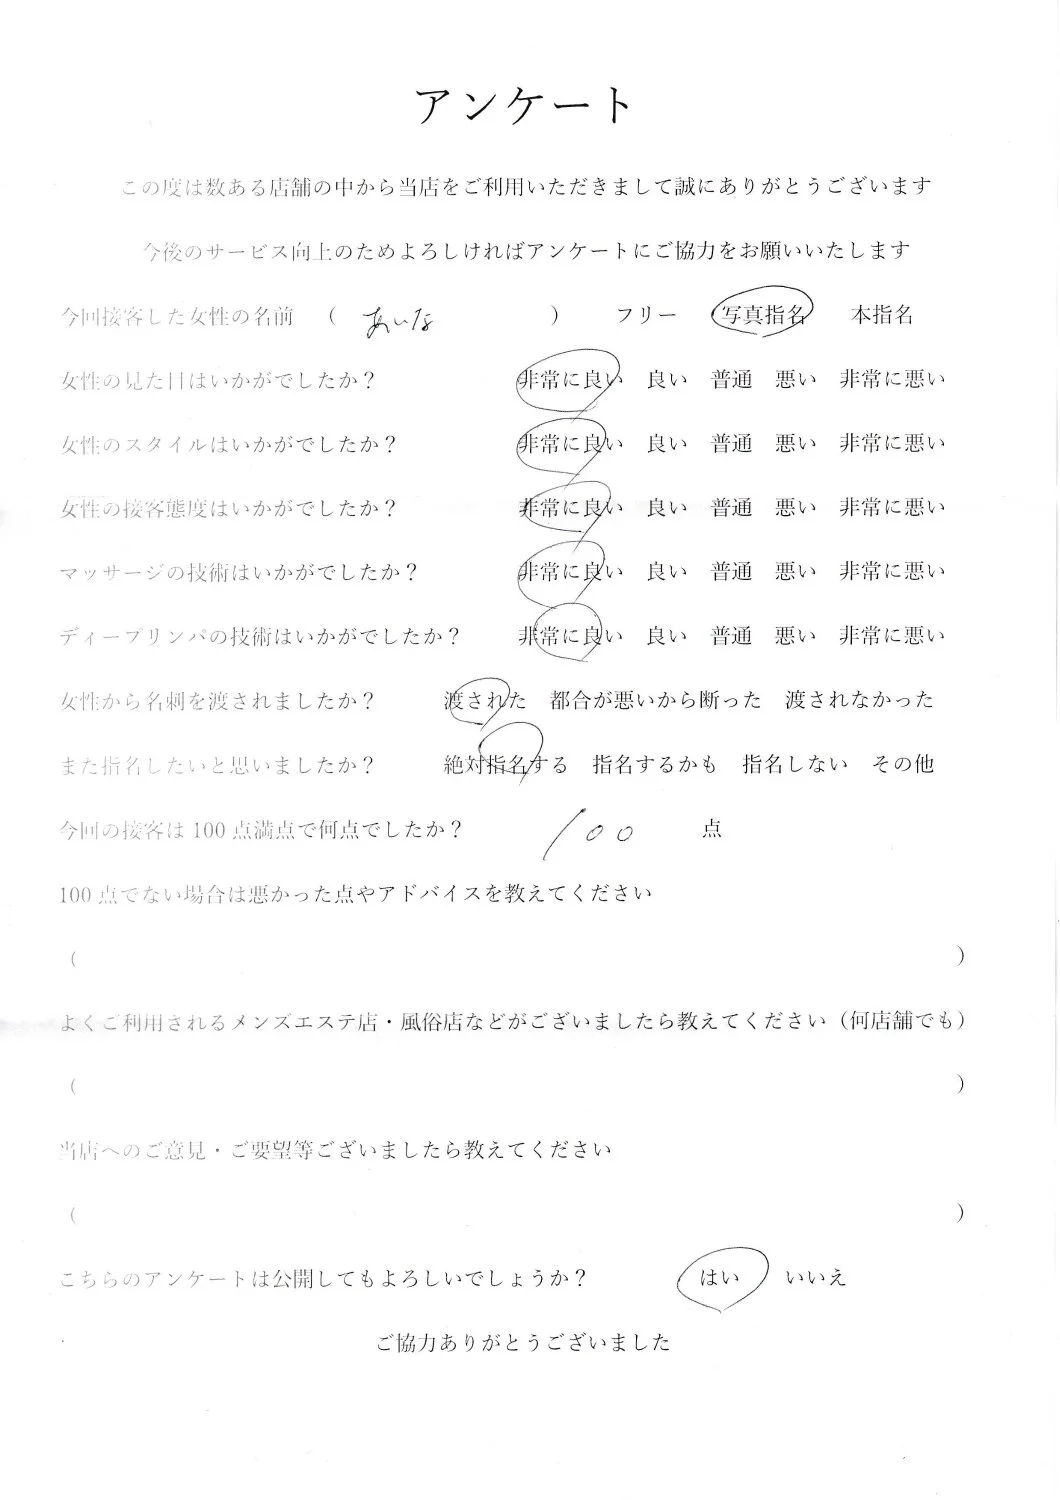 アンケート
この度は数ある店舗の中から当店をご利用いただきまして誠にありがとうございます
今後のサービス向上のためよろしければアンケートにご協力をお願いいたします
今回接客した女性の名前 （ あいな ） フリー 写真指名 本指名
女性の見た目はいかがでしたか？ 非常に良い 良い 普通 悪い 非常に悪い
女性のスタイルはいかがでしたか？ 非常に良い 良い 普通 悪い 非常に悪い
女性の接客態度はいかがでしたか？ 非常に良い 良い 普通 悪い 非常に悪い
マッサージの技術はいかがでしたか？ 非常に良い 良い 普通 悪い 非常に悪い
ディープリンパの技術はいかがでしたか？ 非常に良い 良い 普通 悪い 非常に悪い
女性から名刺を渡されましたか？ 渡された 都合が悪いから断った 渡されなかった
また指名したいと思いましたか？ 絶対指名する 指名するかも 指名しない その他
今回の接客は 100 点満点で何点でしたか？ 100 点
100 点でない場合は悪かった点やアドバイスを教えてください
（ ）
よくご利用されるメンズエステ店・風俗店などがございましたら教えてください（何店舗でも）
（ ）
当店へのご意見・ご要望等ございましたら教えてください
（ ）
こちらのアンケートは公開してもよろしいでしょうか？ はい いいえ
ご協力ありがとうございました